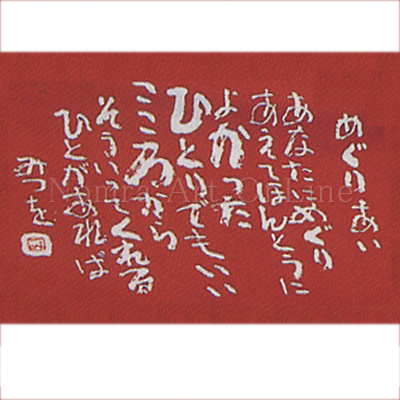 めぐりあい
あなたにめぐり
あえてほんとうに
よかった
ひとりでもいい
こころから
そういってくれる
ひとがあれば
みつを
Nomra Art OnLine